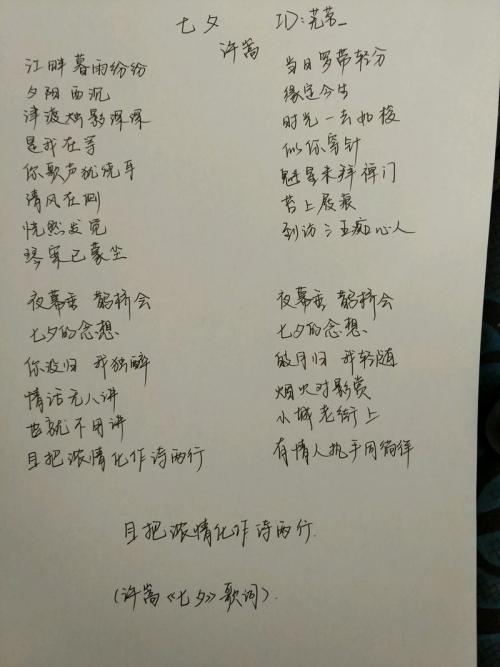 七夕 ID:芜茗_
许嵩
江畔暮雨纷纷
夕阳西沉
津渡烛影深深
是我在等
你歌声犹绕耳
清风在侧
恍然发觉
琴案已蒙尘
夜幕垂 鹊桥会
七夕的念想
你没归 我独醉
情话无人讲
也就不用讲
且把浓情化作诗两行
当日罗带轻分
缘定今生
时光一去如梭
似你穿针
魁星来拜禅门
苔上屐痕
到访三五痴心人
夜幕垂 鹊桥会
七夕的念想
皎月归 我轻随
烟火对影赏
小城老街上
有情人执手同徜徉
且把浓情化作诗两行.
(许嵩《七夕》歌词).